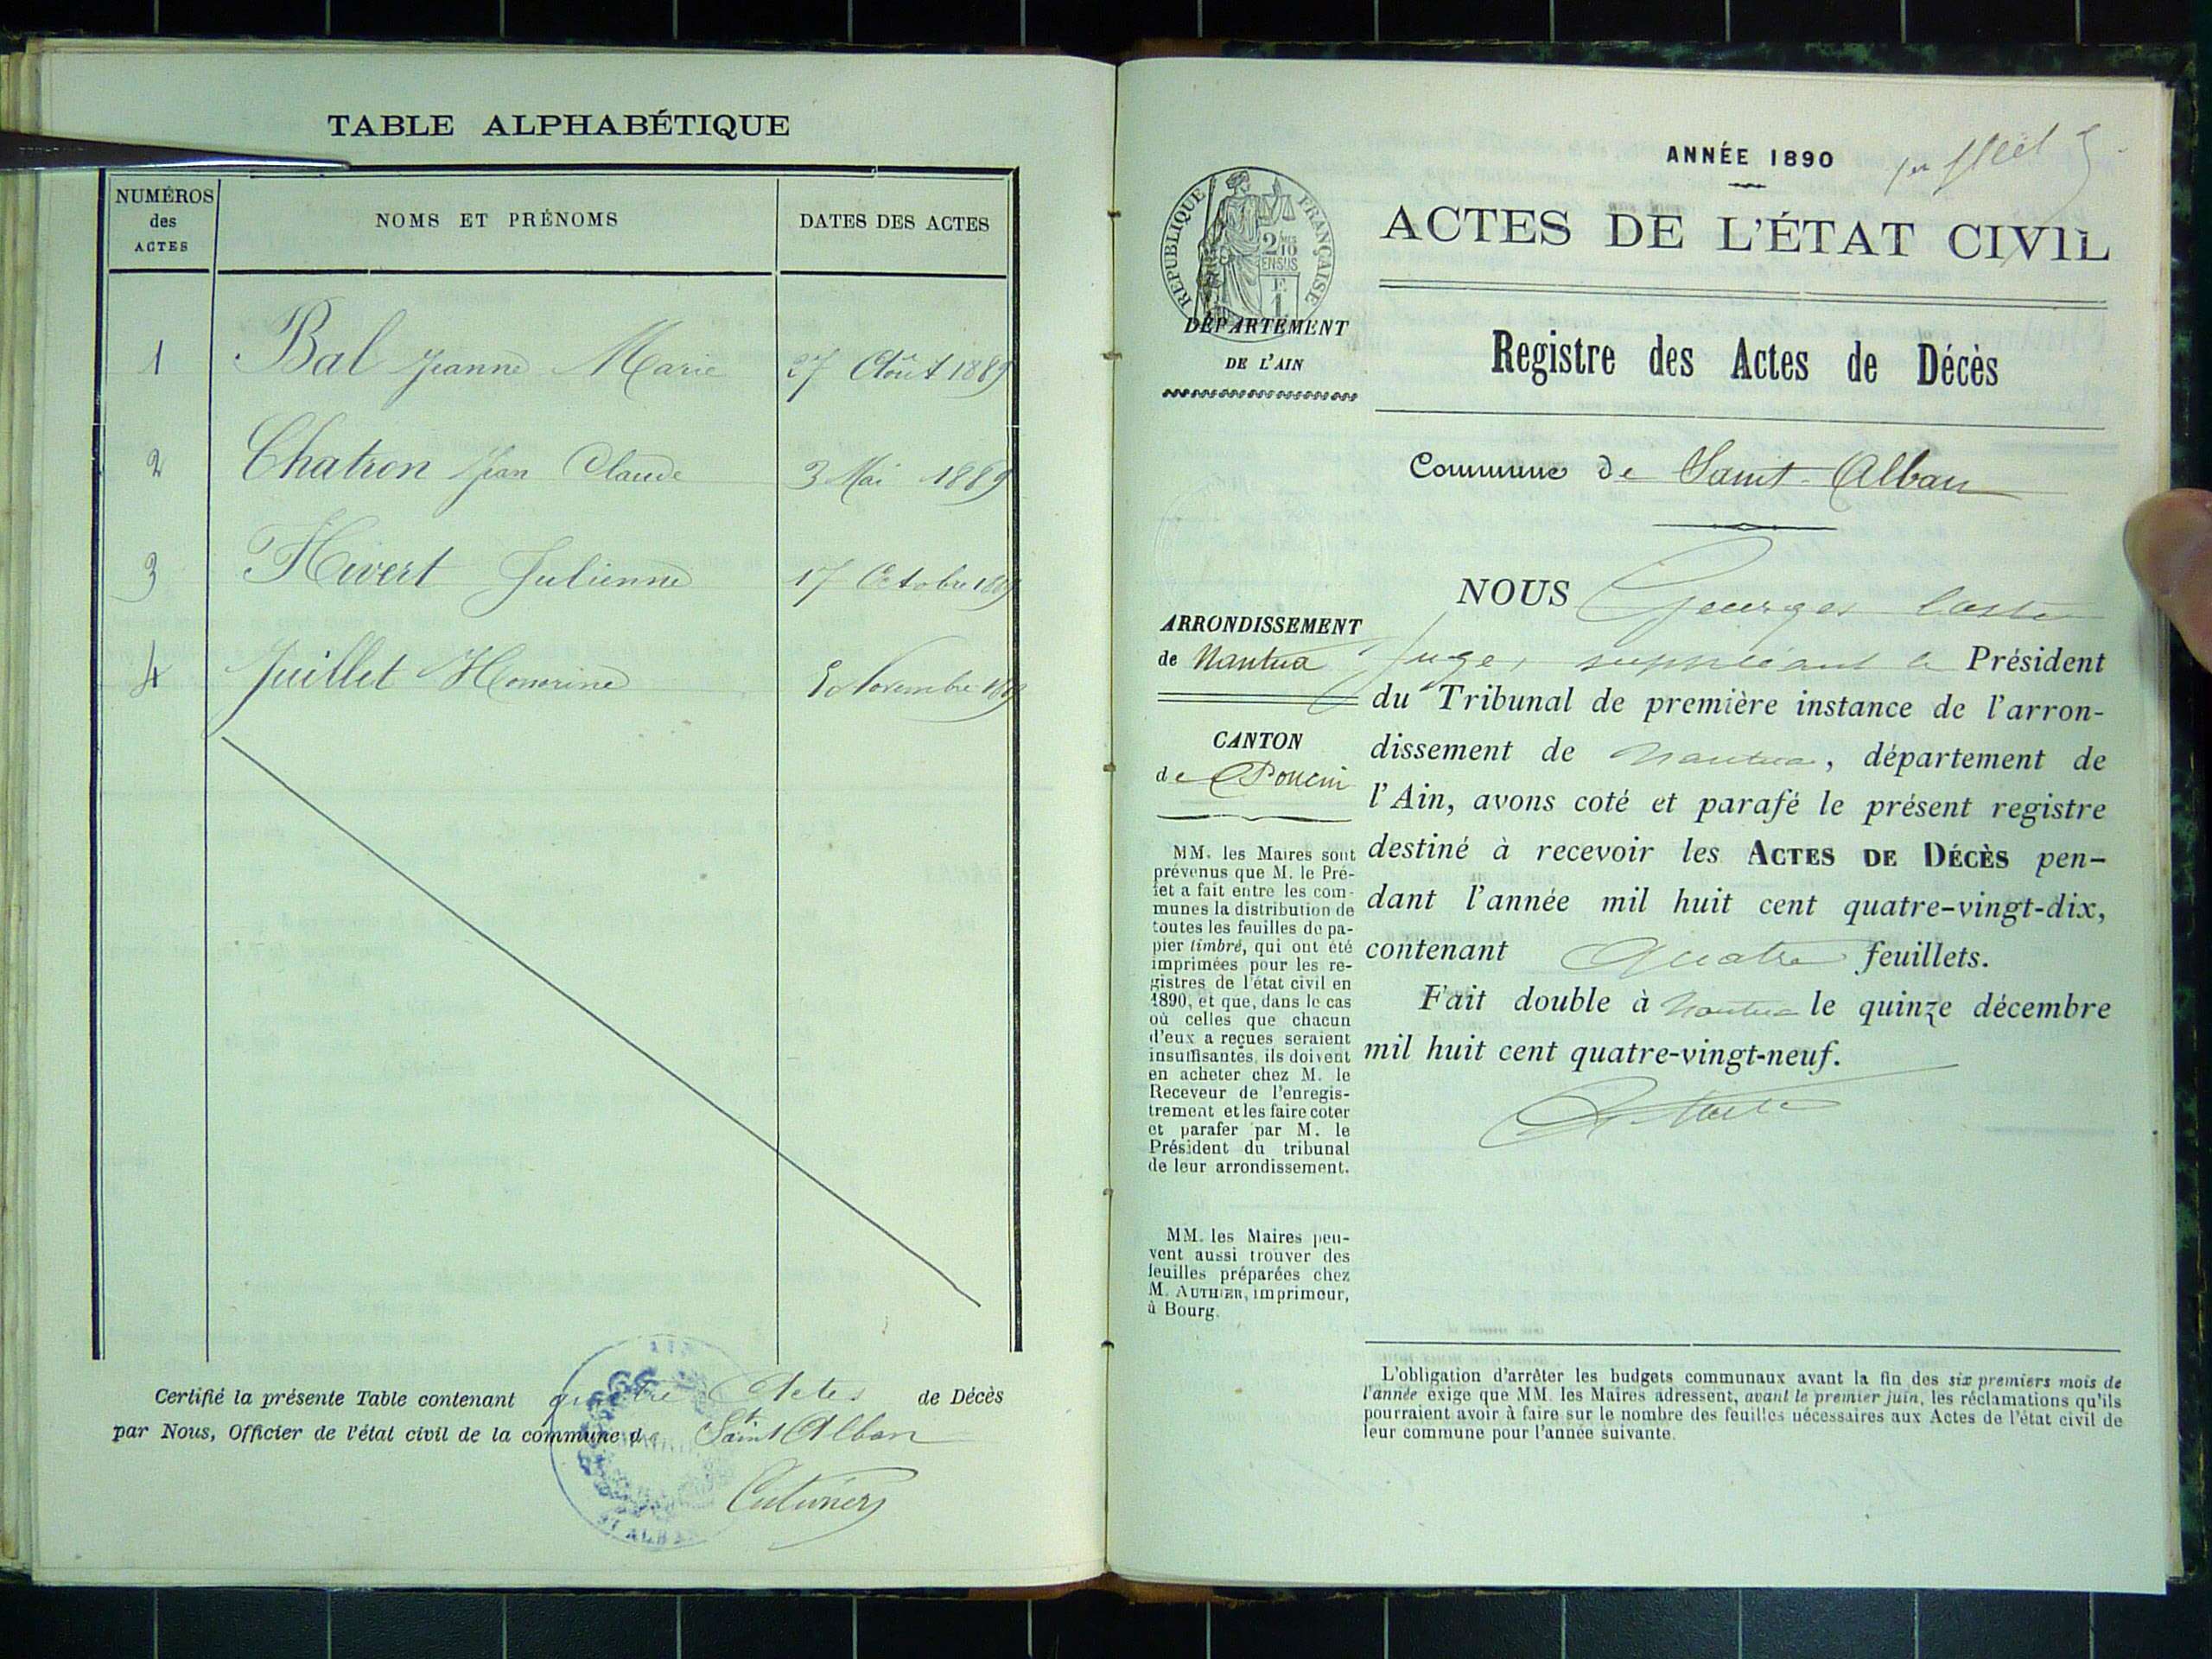 TABLE ALPHABÉTIQUE
NUMÉROS des ACTES
NOMS ET PRÉNOMS
DATES DES ACTES
1 Bal Jeanne Marie 27 Août 1889
2 Chatron Jean Claude 3 Mai 1889
3 Hivert Julienne 17 Octobre 1889
4 Juillet Honorine Novembre 1889
Certifié la présente Table contenant quatre Actes de Décès
par Nous, Officier de l'état civil de la commune de Saint Alban
AIN
ST ALBAN
ANNÉE 1890
RÉPUBLIQUE FRANÇAISE
ACTES DE L'ÉTAT CIVIL
DÉPARTEMENT
DE L'AIN
Registre des Actes de Décès
Commune de Saint-Alban
ARRONDISSEMENT
de Nantua
CANTON
de Poncin
MM. les Maires sont
prévenus que M. le Pré-
fet a fait entre les com-
munes la distribution de
toutes les feuilles de pa-
pier timbré, qui ont été
imprimées pour les re-
gistres de l'état civil en
1890, et que, dans le cas
où celles que chacun
d'eux a reçues seraient
insuffisantes, ils doivent
en acheter chez M. le
Receveur de l'enregis-
trement et les faire coter
et parafer par M. le
Président du tribunal
de leur arrondissement.
MM. les Maires peu-
vent aussi trouver des
feuilles préparées chez
M. AUTHIER, imprimeur,
à Bourg.
NOUS Georges
Juge suppléant le Président
du Tribunal de première instance de l'arron-
dissement de Nantua, département de
l'Ain, avons coté et parafé le présent registre
destiné à recevoir les ACTES DE DÉCÈS pen-
dant l'année mil huit cent quatre-vingt-dix,
contenant Quatre feuillets.
Fait double à Nantua le quinze décembre
mil huit cent quatre-vingt-neuf.
L'obligation d'arrêter les budgets communaux avant la fin des six premiers mois de
l'année exige que MM. les Maires adressent, avant le premier juin, les réclamations qu'ils
pourraient avoir à faire sur le nombre des feuilles nécessaires aux Actes de l'état civil de
leur commune pour l'année suivante.